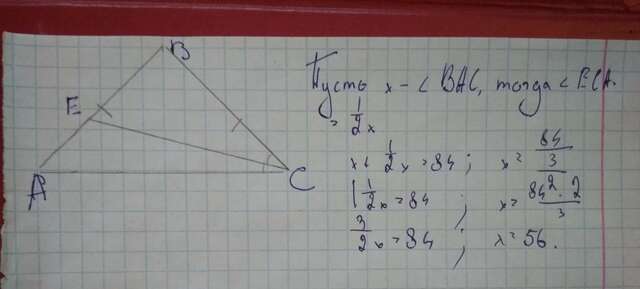 B
E
A
C
Пусть x - < BAC, тогда < ECA
= 1/2 x
x + 1/2 x = 84 ; x = 84/3
1 1/2 x = 84 ; x = 84 · 2/3
3/2 x = 84 ; x = 56.